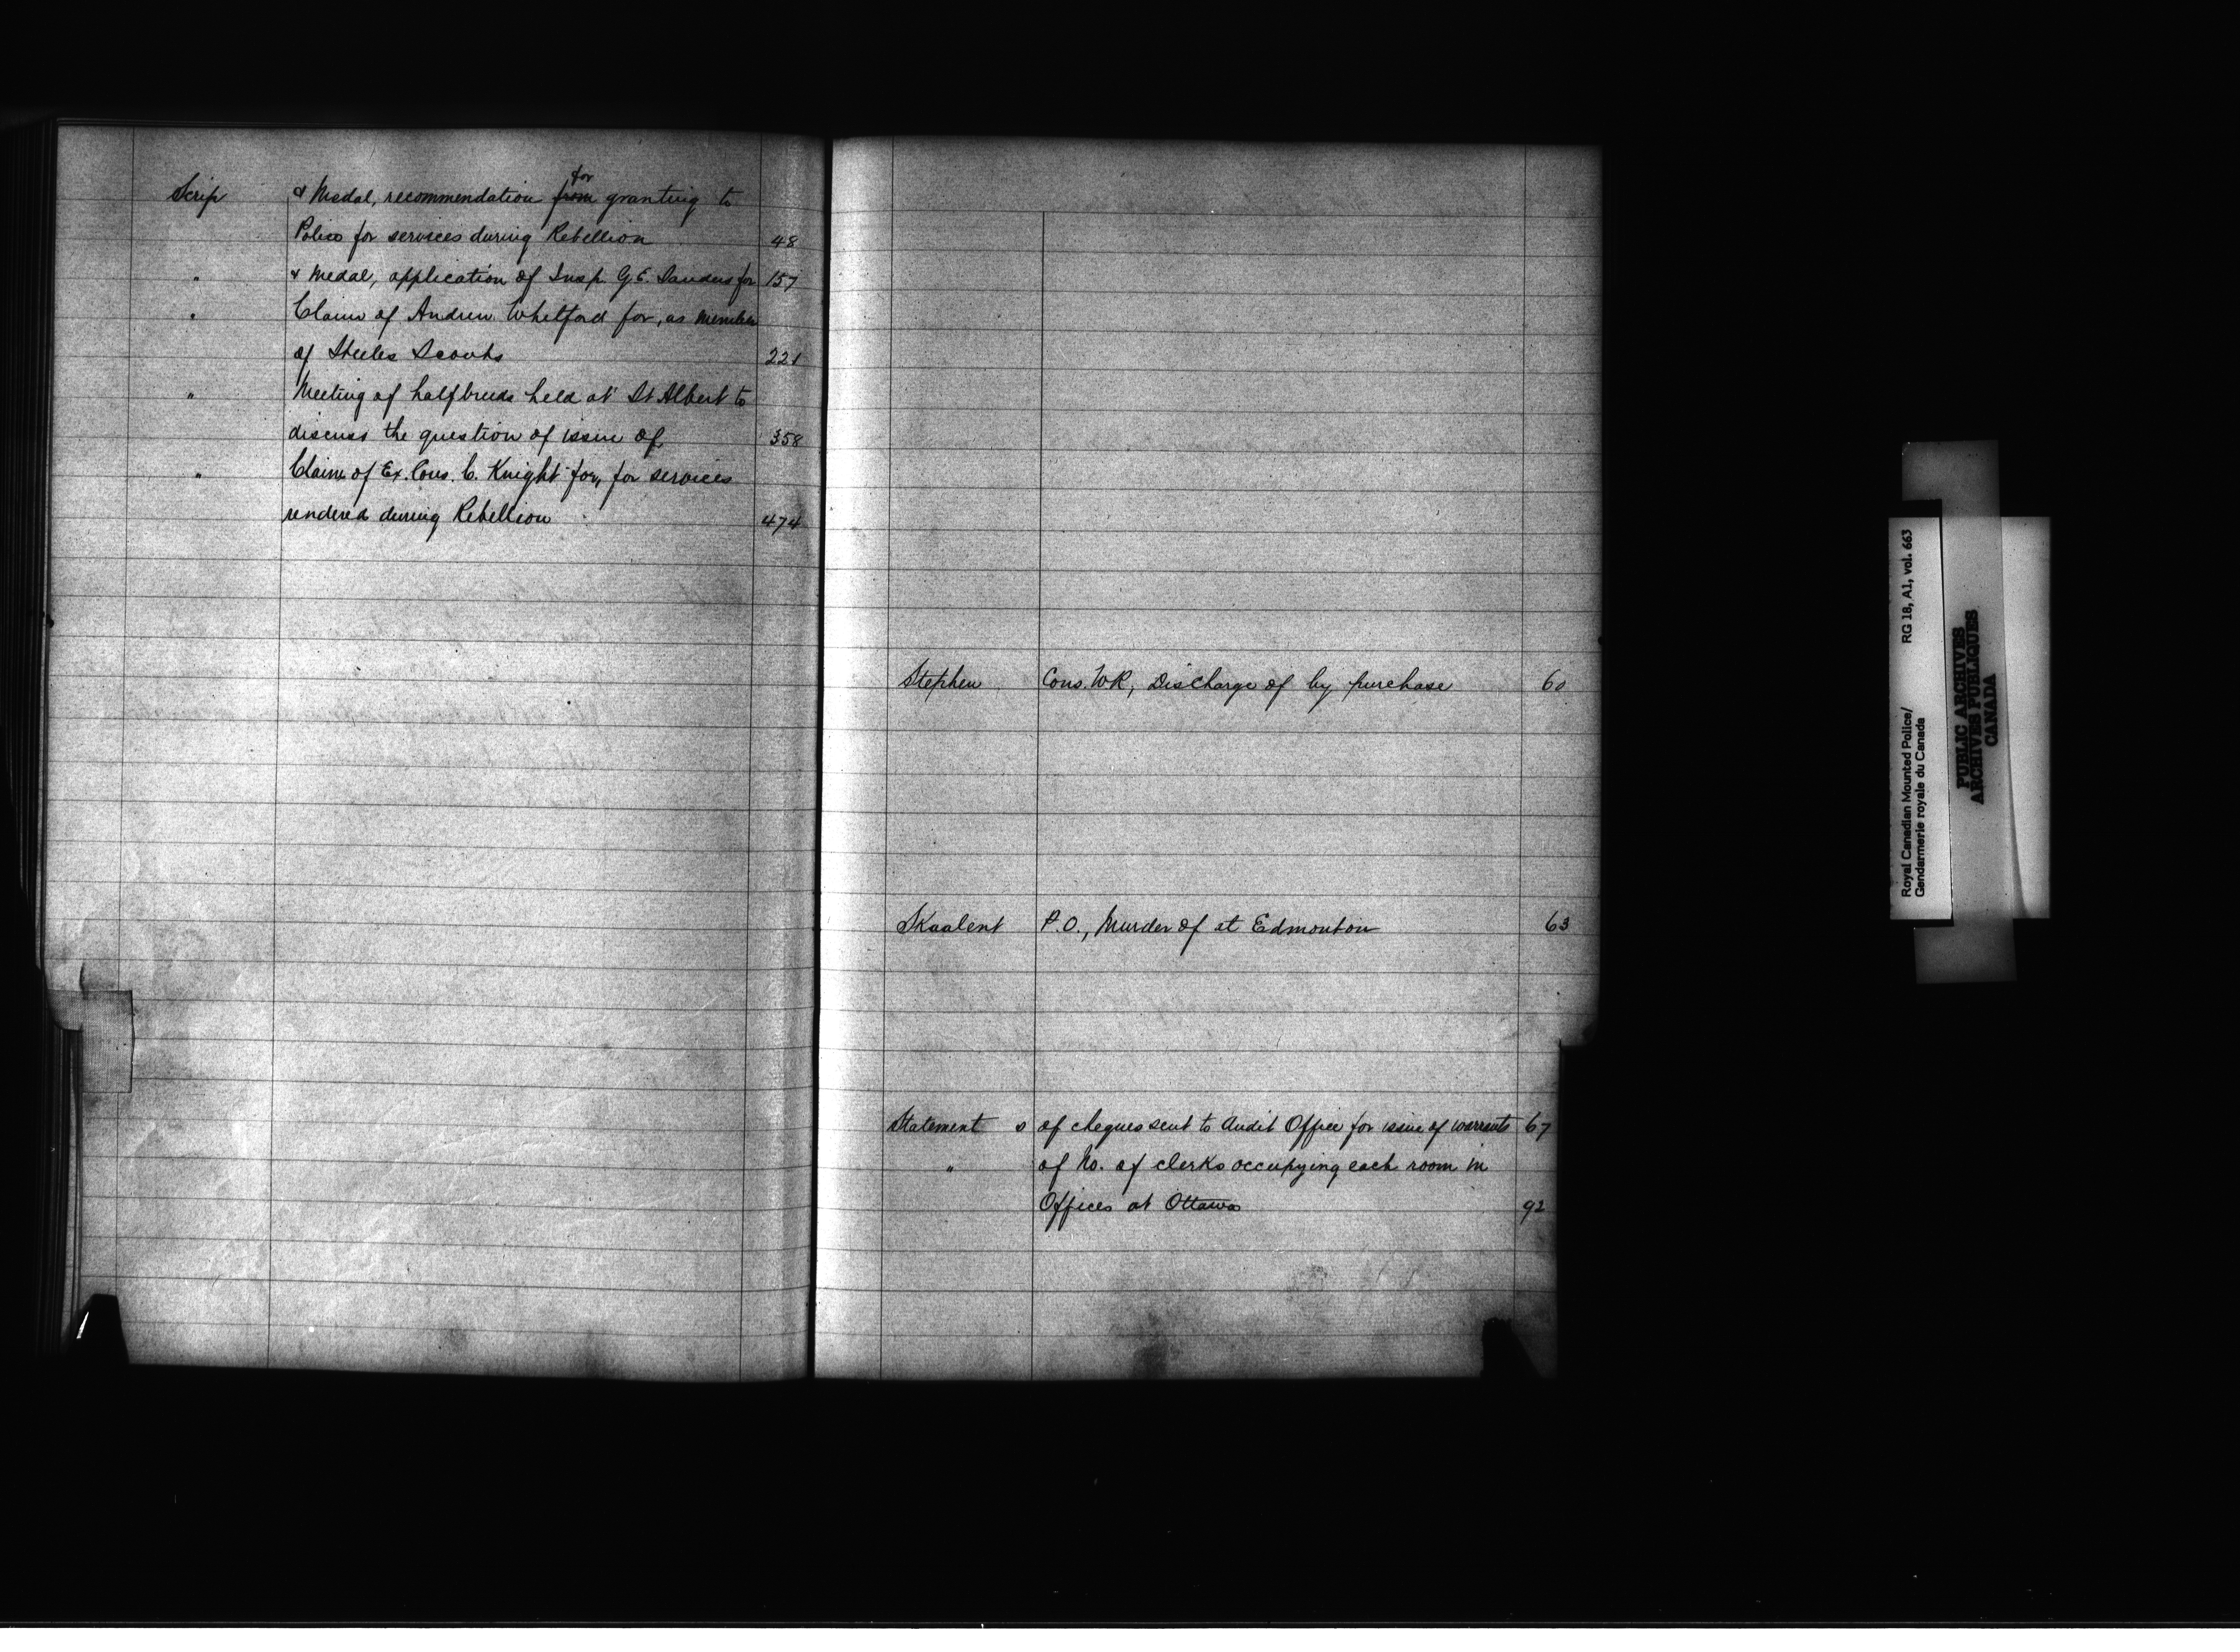 Scrip & Medal, recommendation from for granting to
Police for services during Rebellion 48
" & Medal, application of Insp. G E. Sanders for 157
" Claim of Andrew Whitford for, as member
of Steeles Scouts 221
" Meeting of halfbreeds held at St Albert to
discuss the question of issue of, 358
" Claim of Ex. Cons. C. Knight for, for services
rendered during Rebellion 474
Stephen Cons. WR, Discharge of by purchase 60
Skaalent P.O., Murder of at Edmonton 63
Statement s of cheques sent to Audit Office for issue of warrants 67
" of No. of clerks occupying each room in
Offices at Ottawa 92
Royal Canadian Mounted Police/ RG 18, A1, vol. 663
Gendarmerie royale du Canada
PUBLIC ARCHIVES
ARCHIVES PUBLIQUES
CANADA